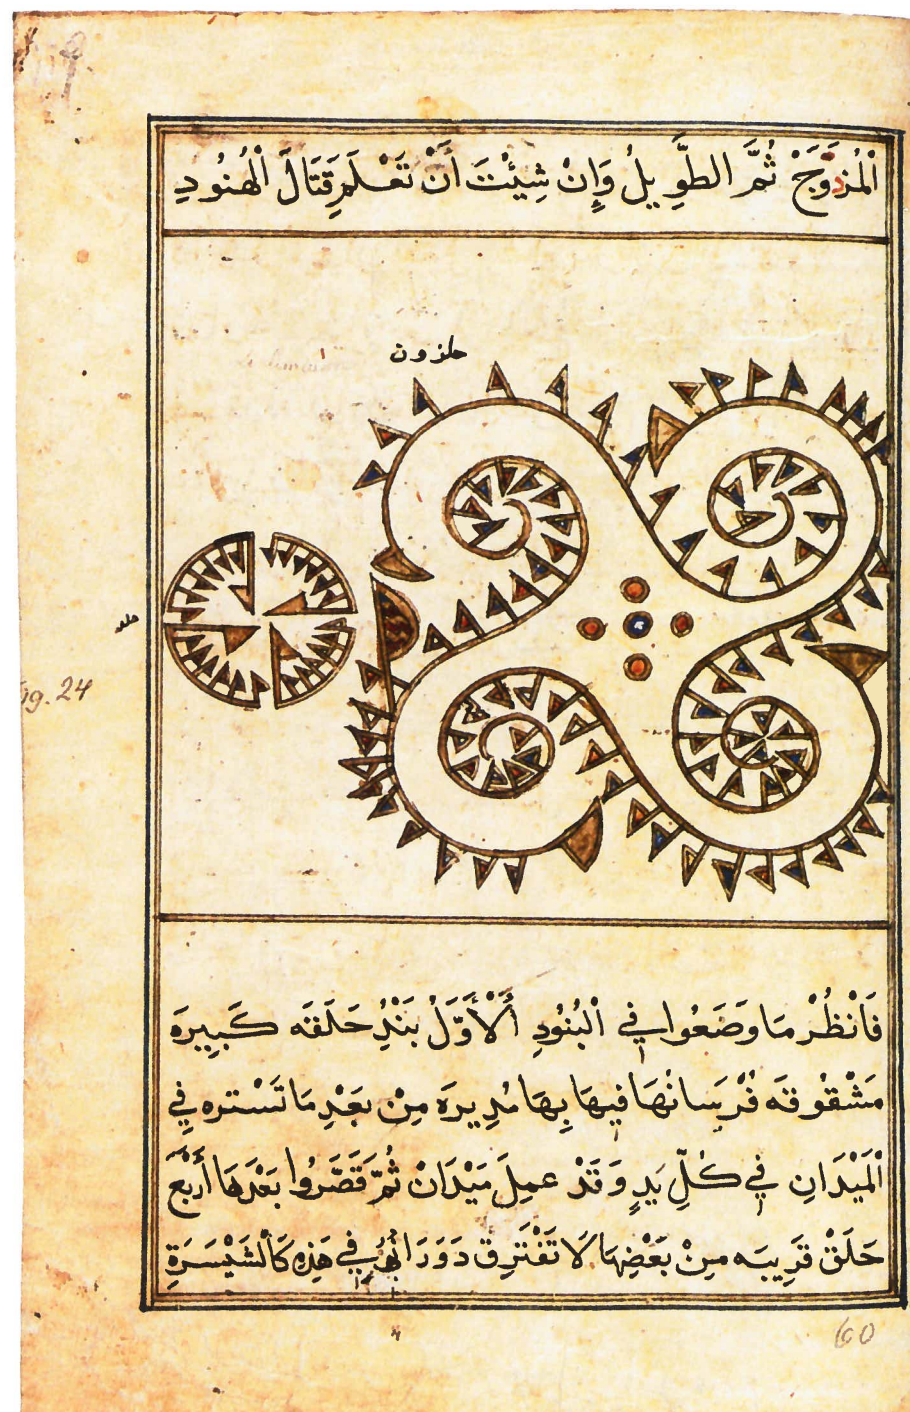 اْلمُزدوَجْ ثُمَّ الطَّوِيلُ وَإِنْ شِيئْتَ أَنْ تَعْلَمِ قَتَالَ اْلهُنُودِ
حلزون
Fig. 24
فَانْظُرْ مَا وَضَعُوا فِي اْلبُنُودِ اْلأَوَّلْ بَنْدُ حَلَقَه كَبِيرَه
مَشْقُوقَه فُرْسَانُهَا فِيهَا بِهَا مُدِيرَه مِنْ بَعْدِ مَا تَسْتره فِي
اْلمَيْدَانِ فِي كُلِّ يَدٍ وَقَدْ عمِلَ مَيْدَانْ ثُمَّ قَصَّرُوا بَعْدَهَا أَرْبَع
حَلَقْ قَرِيبَه مِنْ بَعْضِهَا لَا تَفْتَرِق دَوَرَانُهُمْ فِي هَذِه كَالْشَيْسَرَةِ
60